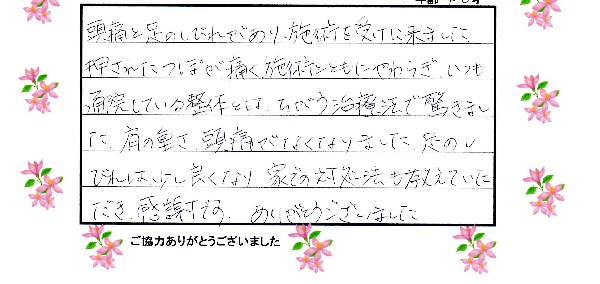 頭痛と足のしびれがあり、施術を受けに来ました
押されたつぼが痛く施術とともにやわらぎ、いつも
通院している整体とは、ちがう治療法で驚きまし
た。肩の重さ、頭痛がなくなりました。足のし
びれは少し良くなり 家での対処法も教えていた
だき、感謝です。ありがとうございました
ご協力ありがとうございました